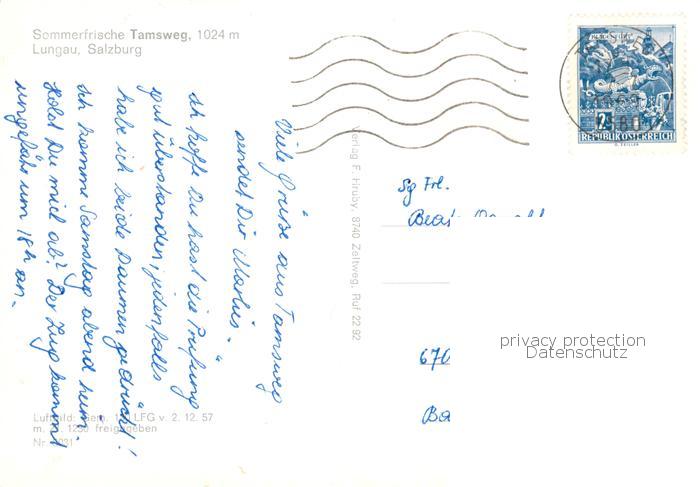 Sommerfrische Tamsweg, 1024 m
Lungau, Salzburg
Viele Grüße aus Tamsweg
sendet Dir Marlis.
Ich hoffe Du hast die Prüfung
gut überstanden, jedenfalls
habe ich beide Daumen gedrückt!
Ich komme Samstag abend heim.
Holst Du mich ab? Der Zug kommt
ungefähr um 18h an.
Verlag F. Hruby, 8740 Zeltweg, Ruf 22 92
2
REPUBLIK ÖSTERREICH
Sg Frl.
Beat
privacy protection
Datenschutz
670
Ba
LFG v. 2. 12. 57
freigegeben
Nr